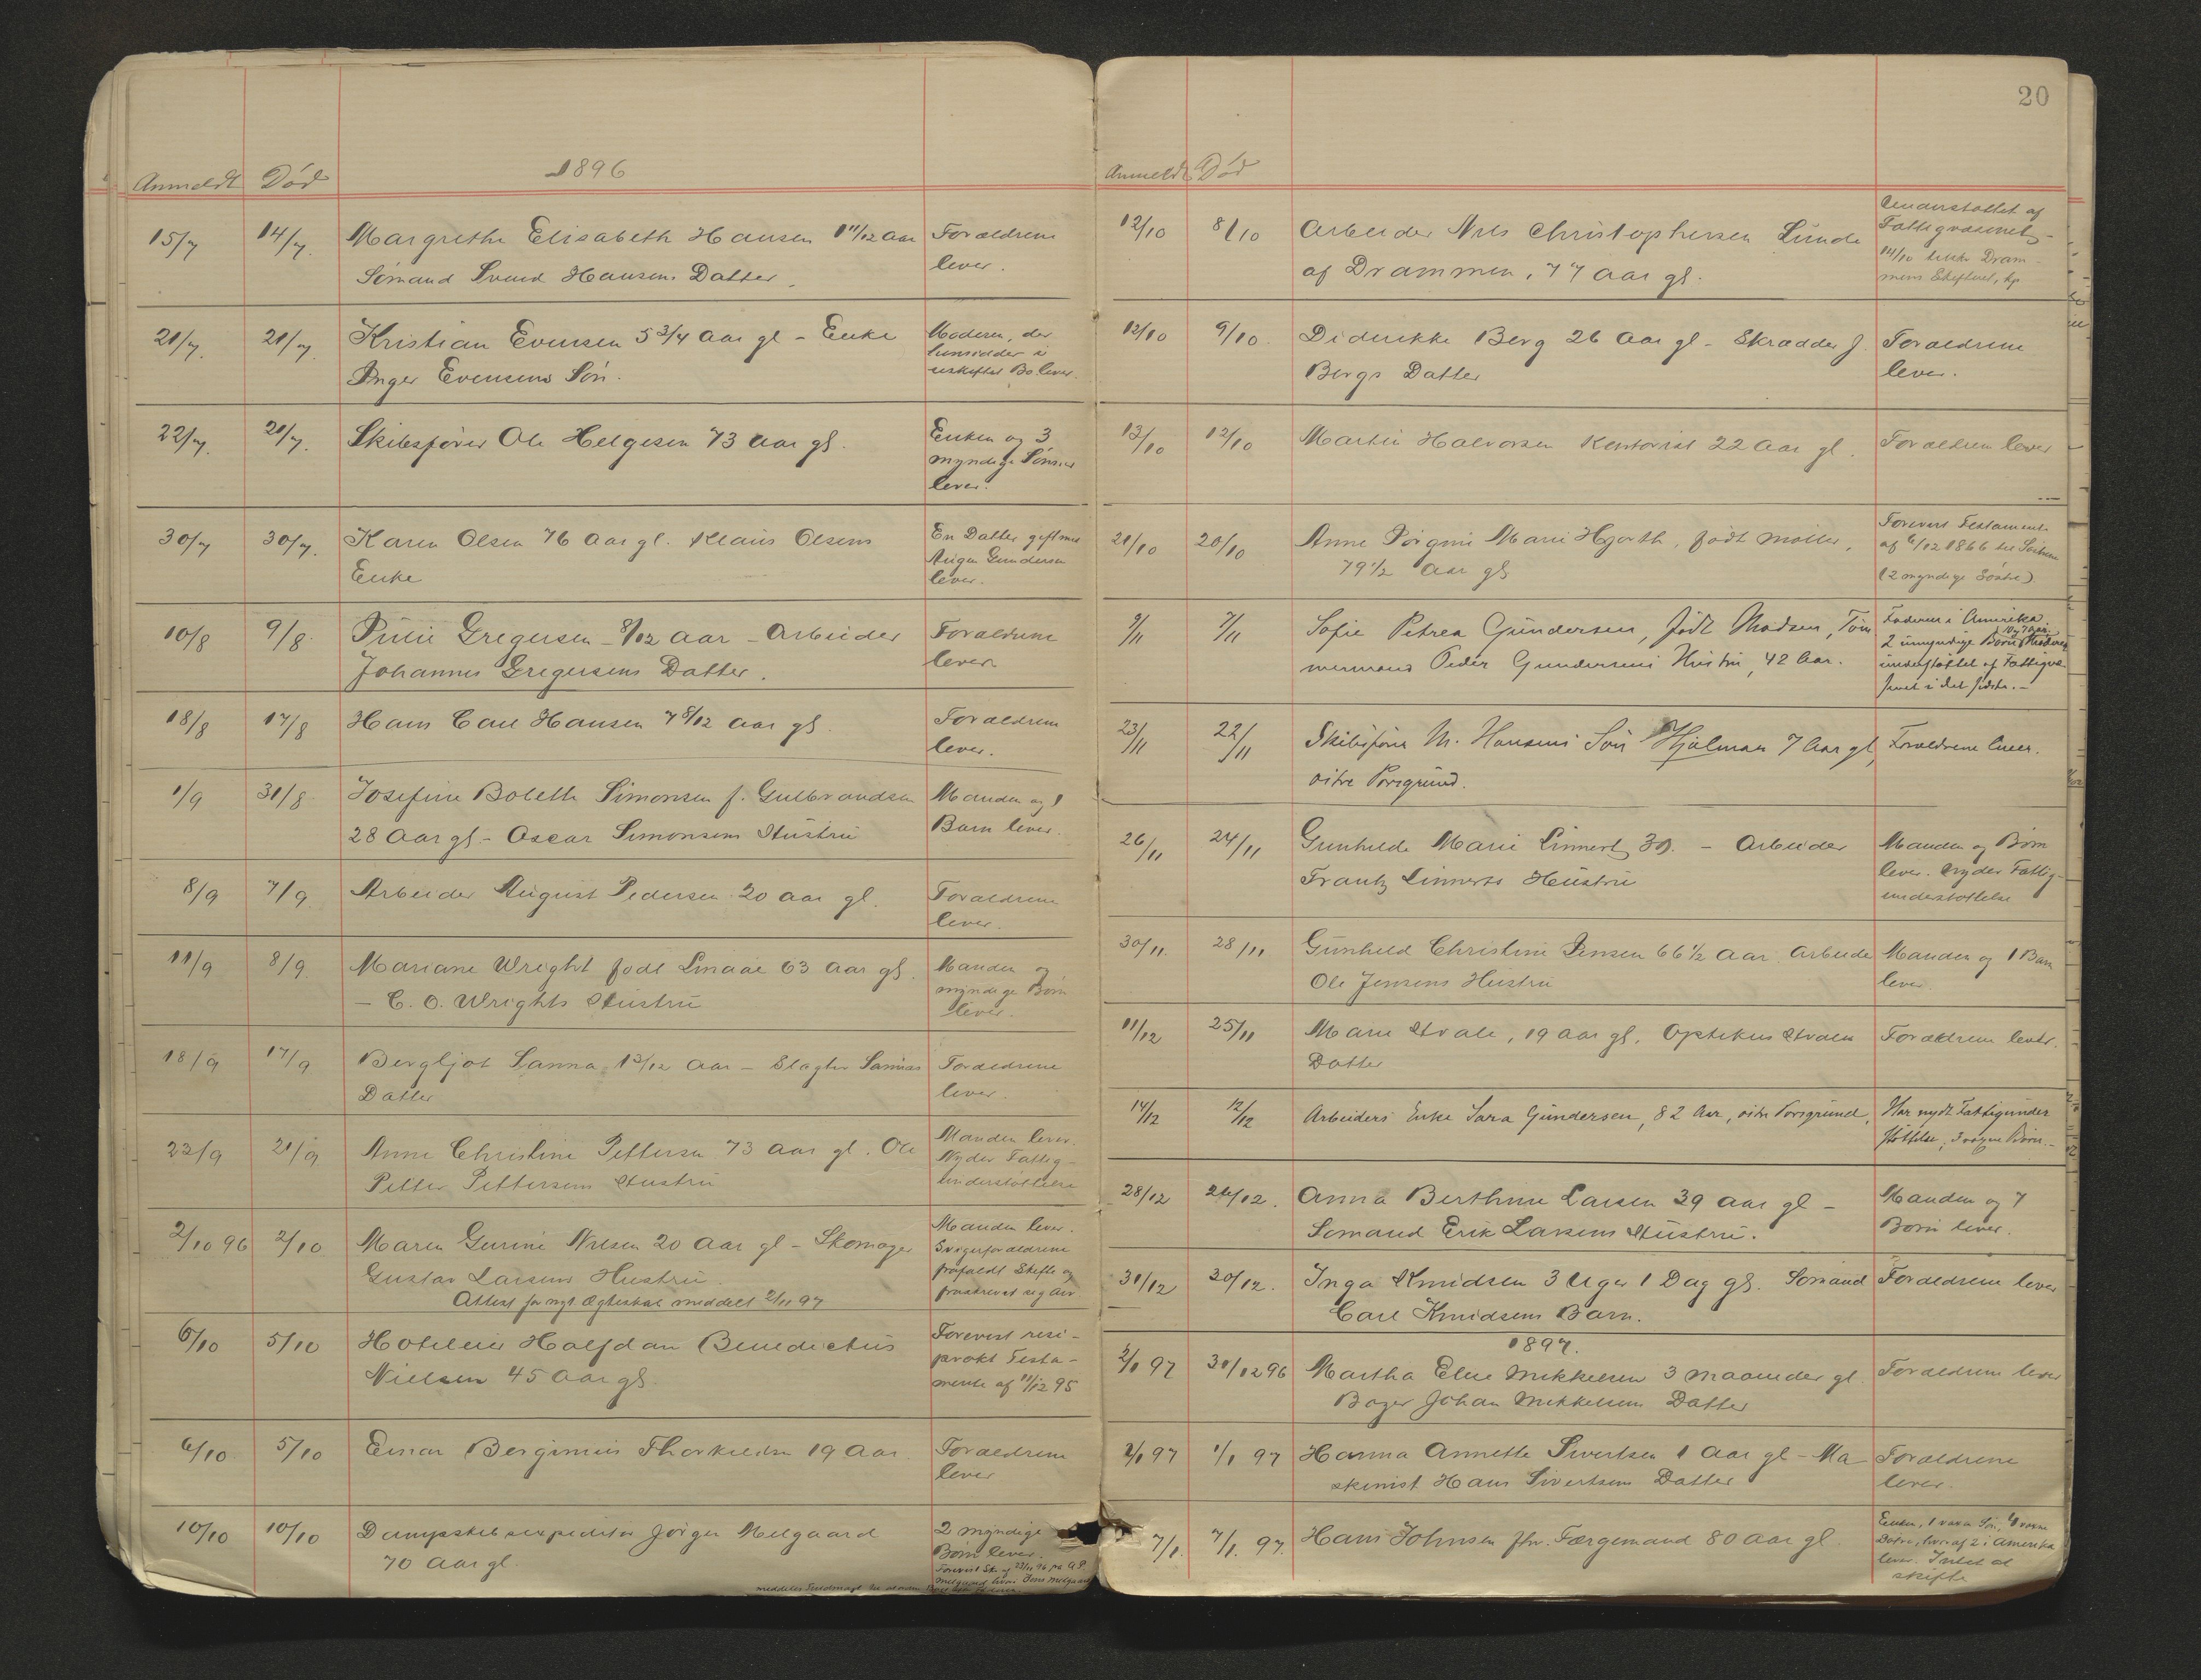 1896
Anmeldt Død
15/7 14/7 Margrethe Elisabeth Hansen 1 11/12 aar Forældrene
Sömand Svend Hansens Datter. lever.
21/7. 21/7. Kristian Evensen 5 3/4 aar gl - Enke Moderen, der
Inger Evensens Sön. sidder i
uskiftet Bo lever.
22/7. 21/7. Skibsförer Ole Helgesen 73 aar gl. Enken og 3
myndige Sönner
lever.
30/7 30/7. Karen Olsen 76 aar gl. Klaus Olsens En Datter gift med
Enke Gundersen
lever.
10/8 9/8. Julie Gregersen - 8/12 aar - Arbeider Forældrene
Johannes Gregersens Datter. lever
18/8 17/8 Hans Carl Hansen 7 8/12 aar gl. Forældrene
lever.
1/9 31/8 Josefine Bolette Simonsen f. Gulbrandsen Manden og 1
28 aar gl - Oscar Simonsens Hustru Barn lever.
8/9 7/9 Arbeider August Pedersen 20 aar gl. Forældrene
lever.
11/9 8/9 Mariane Wright född Linaae 63 aar gl. Manden og
- C. O. Wrights Hustru myndige Börn
lever.
18/9 17/9 Bergljot Sanna 1 3/12 aar - Slagter Sannas Forældrene
Datter lever.
23/9 21/9 Anne Christine Pettersen 73 aar gl. Ole Manden lever.
Petter Pettersens Hustru Nyder Fattig-
understöttelse
2/10 96 2/10 Maren Gurine Nilsen 20 aar gl - Skomager Manden lever.
Gustav Larsens Hustru. Svigerforældrene
frafaldt Skifte og
fraskrevet sig Arv
Attest for nyt Ægteskab meddelt 2/11 97
6/10 5/10 Hoteleier Halfdan Benedictus Forevist resi-
Nielsen 45 aar gl. prokt Testa-
mente af 11/12 95
6/10 5/10 Einar Benjamin Thorkildsen 19 aar Forældrene
lever
10/10 10/10 Dampskibsexpeditör Jörgen Melgaard 2 myndige
70 aar gl. Börn lever.
20
Anmeldt Död
12/10 8/10 Arbeider Nils Christophersen Lunde Understöttet af
af Drammen, 77 aar gl. Fattigvæsenet -
14/10 Dram-
mens Skifteret,
12/10 9/10. Diderikke Berg 26 aar gl - Skrædder J. Forældrene
Bergs Datter lever.
13/10 12/10 Martin Halvorsen Kontorist 22 aar gl. Forældrene lever
21/10 20/10 Anne Marie Hjorth, födt Möller, Forevist Testamente
79 1/2 aar gl af 6/12 1866
(2 myndige )
9/11 7/11 Sofie Petrea Gundersen, födt Madsen, Töm Faderen i Amerika.
mermand Peder Gundersens Hustru, 42 Aar. 2 umyndige Börn
understöttet af Fattigvæ-
senet i det sidste. -
23/11 22/11 Skibsförer M. Hansens Sön Hjalmar 7 Aar gl, Forældrene lever.
östre Porsgrund.
26/11 24/11 Gunhilde Marie Linnert 39. - Arbeider Manden og Börn
Frantz Linnerts Hustru lever. Nyder Fattig-
understöttelse
30/11. 28/11 Gunhild Christine Jensen 66 1/2 aar Arbeider Manden og 1 Barn
Ole Jensens Hustru lever.
11/12 25/11 Marie Hvale, 19 aar gl. Optikus Hvales Forældrene lever.
Datter
14/12 12/12 Arbeiders Enke Sara Gundersen, 82 Aar, östre Porsgrund, Har nydt Fattigunder
stöttelse, 3 voxne Börn. -
28/12 26/12. Anna Berthine Larsen 39 aar gl - Manden og 7
Sömand Erik Larsens Hustru. Börn lever.
31/12 30/12. Inga Knudsen 3 Uger 1 Dag gl. Sömand Forældrene lever
Carl Knudsens Barn.
1897.
2/1 97 31/12 96 Martha Elise Mikkelsen 3 maaneder gl. Forældrene lever
Bager Johan Mikkelsens Datter
2/1 97 1/1 97 Hanna Annette Sivertsen 1 aar gl - Ma Forældrene
skinist Hans Sivertsens Datter lever.
7/1. 7/1. 97. Hans Johnsen fhv. Færgemand 80 aar gl. Enken, 1 voxn Sön, 4 voxne
Dötre, hvoraf 2 i Amerika
lever. Intet at
skifte